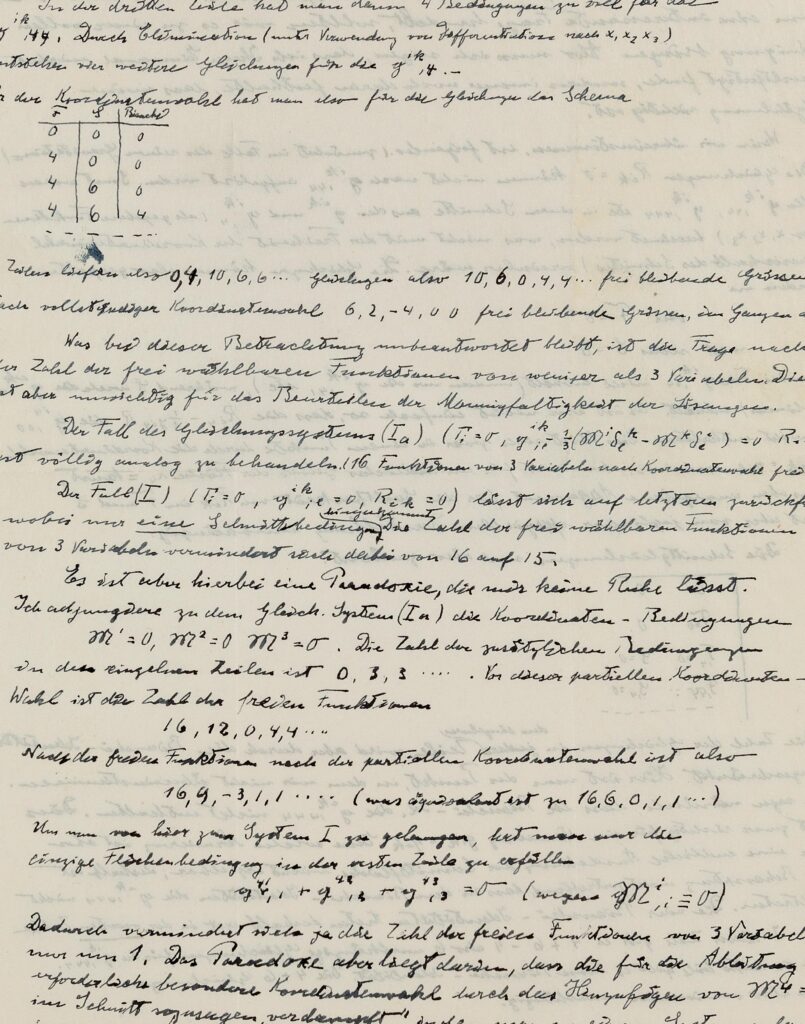 In der dritten Zeile hat man dann 4 Bedingungen zu viel für das
g^{ik},44. Durch Elimination (unter Verwendung von Differentiationen nach x₁ x₂ x₃)
entstehen vier weitere Gleichungen für die g^{ik},4. —
der Koordinatenwahl hat man also für die Gleichungen das Schema
σ S Bianchi
0 0 0
4 0 0
4 6 0
4 6 4
Zeilen liefern also 0, 4, 10, 6, 6 ··· Gleichungen also 10, 6, 0, 4, 4 ··· frei bleibende Grössen
nach vollständiger Koordinatenwahl 6, 2, -4, 0 0 frei bleibende Grössen, im Ganzen
Was bei dieser Betrachtung unbeantwortet bleibt, ist die Frage nach
der Zahl der frei wählbaren Funktionen von weniger als 3 Variabeln. Die
ist aber unwichtig für das Beurteilen der Mannigfaltigkeit der Lösungen.
Der Fall des Gleichungssystems (Ia) (Γi = 0, g^{ik},l - 1/3 (M^i δ_l^k - M^k δ_l^i) = 0 R
ist völlig analog zu behandeln. (16 Funktionen von 3 Variabeln nach Koordinatenwahl frei
Der Fall (I) (Γi = 0, g^{ik},l = 0, R_{ik} = 0) lässt sich auf letzteren zurückf
wobei nur eine Schnittbedingung Die Zahl der frei wählbaren Funktionen
von 3 Variabeln vermindert sich dabei von 16 auf 15.
Es ist aber hierbei eine Paradoxie, die mir keine Ruhe lässt.
Ich adjungiere zu dem Gleich. System (Ia) die Koordinaten-Bedingungen
M¹ = 0, M² = 0 M³ = 0. Die Zahl der zusätzlichen Bedingungen
in den einzelnen Zeilen ist 0, 3, 3 ····. Vor dieser partiellen Koordinaten-
Wahl ist die Zahl der freien Funktionen
16, 12, 0, 4, 4 ···
Nach der freien Funktionen nach der partiellen Koordinatenwahl ist also
16, 9, -3, 1, 1 ····· (was äquivalent ist zu 16, 6, 0, 1, 1 ···)
Um nun von hier zum System I zu gelangen, hat man nur die
einzige Flächenbedingung in der ersten Zeile zu erfüllen
g^{41},1 + g^{42},2 + g^{43},3 = 0 (wegen M^i,i ≡ 0)
Dadurch vermindert sich ja die Zahl der freien Funktionen von 3 Variabel
nur um 1. Das Paradoxe aber liegt darin, dass die für die Ableitung
erforderliche besondere Koordinatenwahl durch das Hinzufügen von M⁴ =
im Schnitt sozusagen